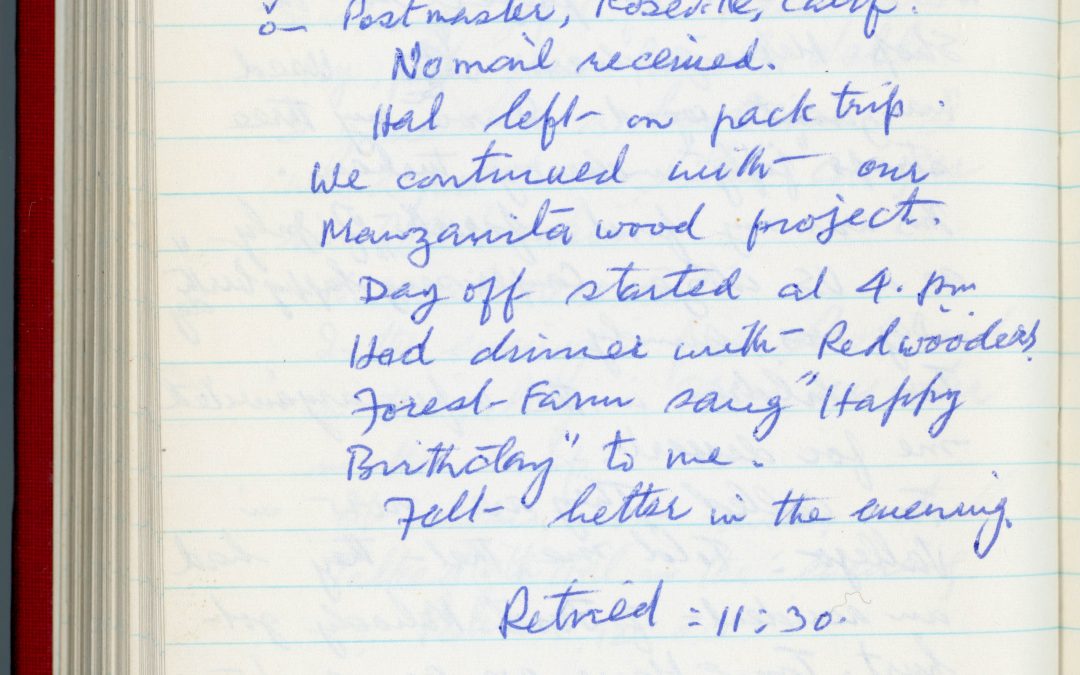 Postmaster, Roseville, Calif.
No mail received.
Hal left on pack trip.
We continued with our
Manzanita wood project.
Day off started at 4. pm
Had dinner with Redwooders.
Forest Farm sang "Happy
Birthday" to me.
Felt better in the evening.
Retried = 11:30.